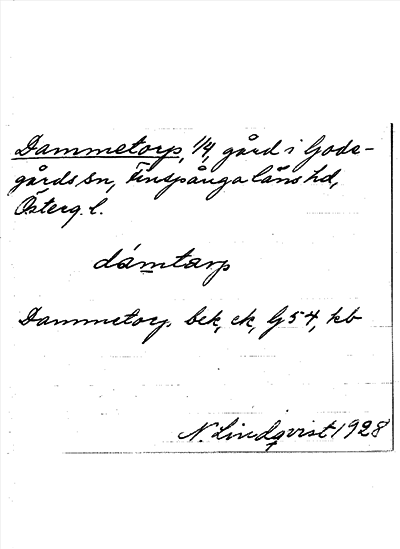 Dammetorp, 1/4, gård i Gode-
gårds sn, Finspånga läns hd,
Österg. l.
dámtarp
Dammetorp bek, ek, G 54, kb
N. Lindqvist 1928